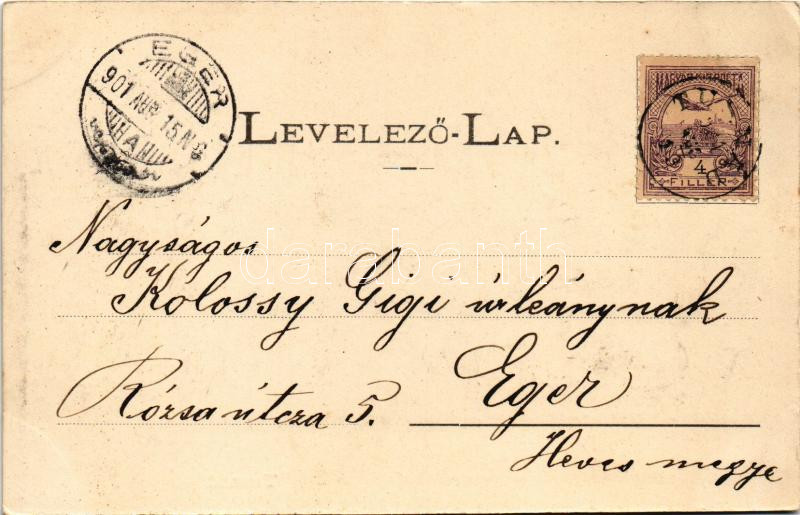 EGER
901 AUG 15 N 6
LEVELEZŐ-LAP.
MAGYAR KIR. POSTA
4
FILLÉR
darabanth
Nagyságos
Kolossy Gigi úrleánynak
Rózsa útcza 5.
Eger
Heves megye